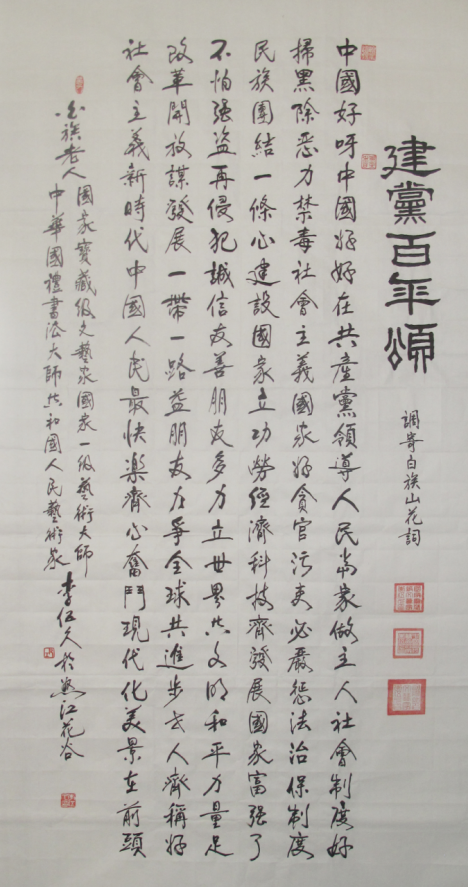 建黨百年頌
調寄白族山花詞
中國好呀中國好好在共產黨領導人民當家做主人社會制度好
掃黑除惡力禁毒社會主義國家好貪官污吏必嚴懲法治保制度
民族團結一條心建設國家立功勞經濟科技齊發展國家富强了
不怕强盜再侵犯誠信友善朋友多力立世界共文明和平力量足
改革開放謀發展一帶一路益朋友力爭全球共進步世人齊稱好
社會主義新時代中國人民最快樂齊心奮鬥現代化美景在前頭
國家寶藏級文藝家國家一級藝術大師
白族老人中華國禮書法大師共和國人民藝術家李伍久於怒江花谷